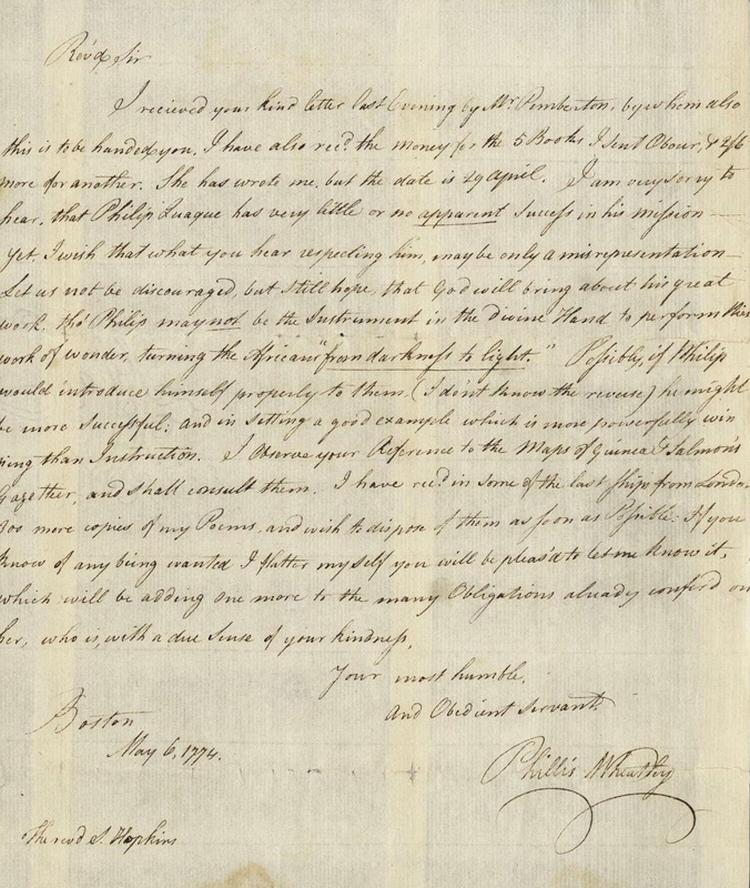 Rev'd Sir
I recieved your kind letter last Evening by Mr. Pemberton, by whom also
this is to be handed you. I have also rec'd. the money for the 5 Books I sent Obour, & 2/6
more for another. She has wrote me, but the date is 29 April. I am very sorry to
hear, that Philip Quaque has very little or no apparent Success in his mission—
Yet, I wish that what you hear respecting him, may be only a misrepresentation—
Let us not be discouraged, but still hope, that God will bring about his great
work, tho' Philip may not be the Instrument in the Divine Hand to perform this
work of wonder, turning the Africans "from darkness to light." Possibly, if Philip
would introduce himself properly to them, (I don't know the reverse) he might
be more Successful; and in setting a good example which is more powerfully win
ning than Instruction. I Observe your Reference to the Maps of Guinea & Salmon's
Gazetteer, and shall consult them. I have rec'd in some of the last ships from London
300 more copies of my Poems, and wish to dispose of them as soon as Possible; If you
know of any being wanted I flatter myself you will be pleas'd to let me know it,
which will be adding one more to the many Obligations already confer'd on
her, who is, with a due Sense of your kindness,
Your most humble,
And Obedient servant.
Boston
May 6, 1774.
Phillis Wheatley
The rev'd S. Hopkins